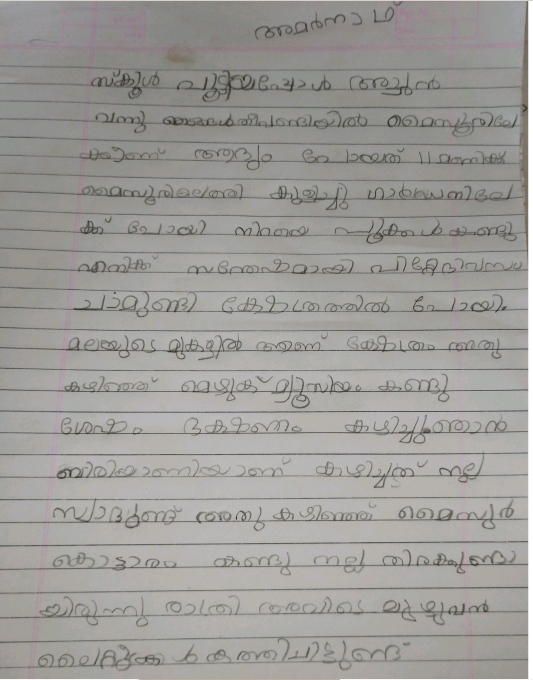 അമർനാഥ്
സ്കൂൾ പൂട്ടിയപ്പോൾ അച്ഛൻ
വന്നു ഞങ്ങൾ തീവണ്ടിയിൽ മൈസൂരിലേ
ക്കാണ് ആദ്യം പോയത് 11 മണിക്ക്
മൈസൂരിലെത്തി കുളിച്ചു ഗാർഡനിലേ
ക്ക് പോയി നിറയെ പൂക്കൾ കണ്ടു
എനിക്ക് സന്തോഷമായി പിറ്റേദിവസം
ചാമുണ്ടി ക്ഷേത്രത്തിൽ പോയി.
മലയുടെ മുകളിൽ ആണ് ക്ഷേത്രം അതു
കഴിഞ്ഞ് മെഴുക് മ്യൂസിയം കണ്ടു
ശേഷം ഭക്ഷണം കഴിച്ചു ഞാൻ
ബിരിയാണിയാണ് കഴിച്ചത് നല്ല
സ്വാദുണ്ട് അതു കഴിഞ്ഞ് മൈസൂർ
കൊട്ടാരം കണ്ടു നല്ല തിരക്കുണ്ടാ
യിരുന്നു രാത്രി അവിടെ മുഴുവൻ
ലൈറ്റുകൾ കത്തിച്ചിട്ടുണ്ട്